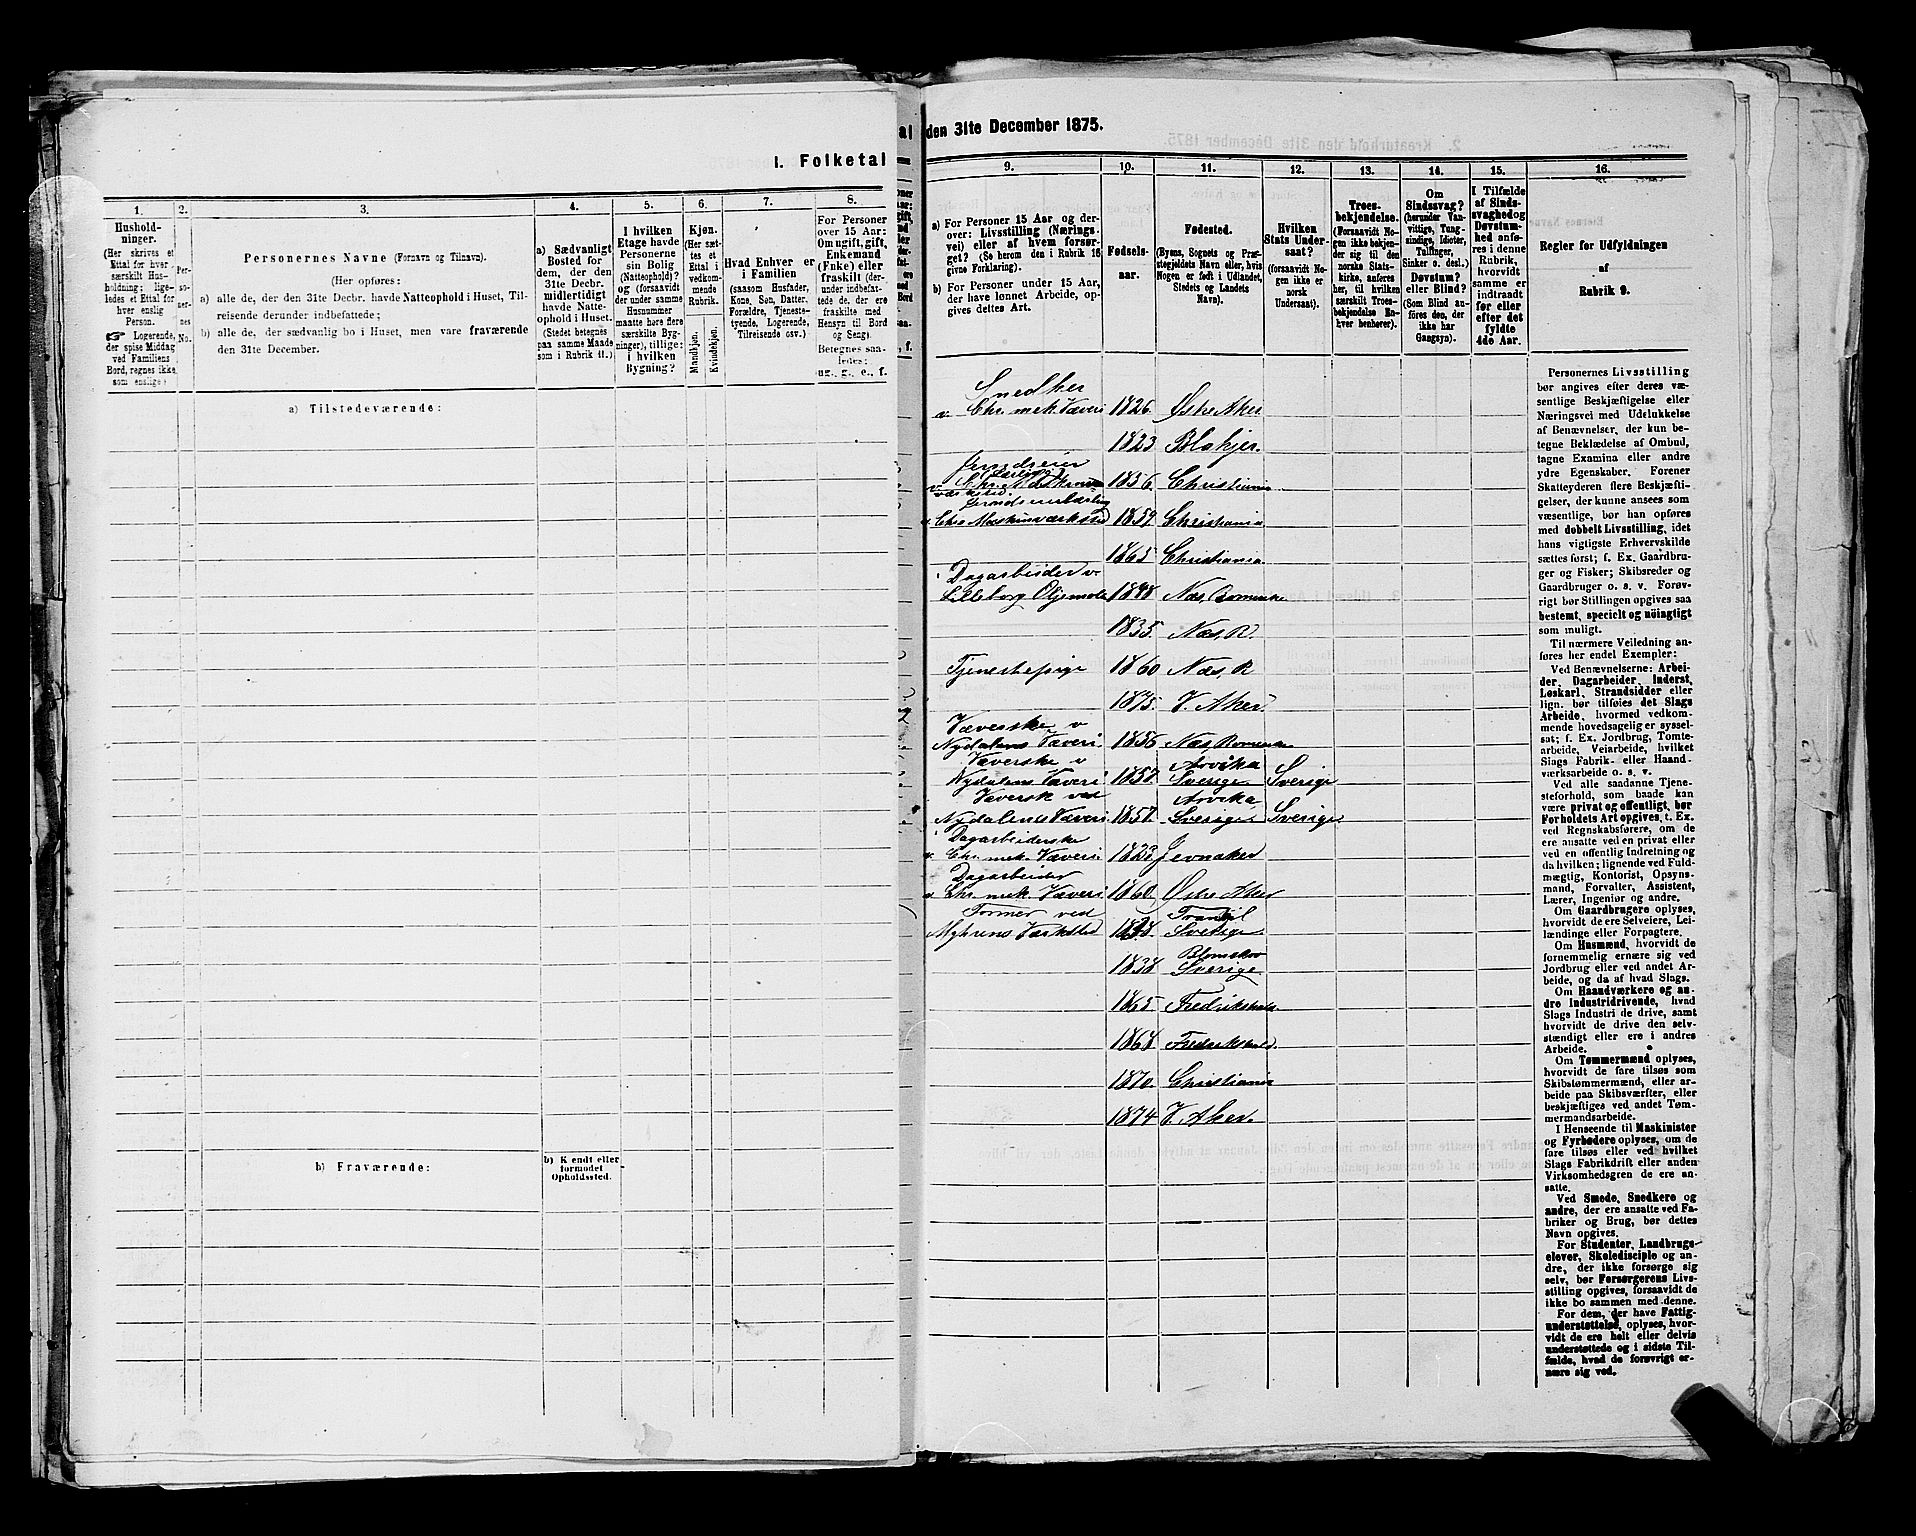 I. Folketal
den 31te December 1875.
1.
2.
3.
4.
5.
6.
7.
8.
Hushold-
ninger.
(Her skrives et
Ettal for hver
særskilt Hus-
holdning; lige-
ledes et Ettal for
hver enslig
Person.
Logerende,
der spise Middag
ved Familiens
Bord, regnes ikke
som enslige)
Per-
so-
ner-
nes
No.
Personernes Navne (Fornavn og Tilnavn).
(Her opføres:
a) alle de, der den 31te Decbr. havde Natteophold i Huset, Til-
reisende derunder indbefattede;
b) alle de, der sædvanlig bo i Huset, men vare fraværende
den 31te December.
a) Sædvanligt
Bosted for
dem, der den
31te Decbr.
midlertidigt
havde Natte-
ophold i Huset.
(Stedet betegnes
paa samme Maade
som i Rubrik 11.)
I hvilken
Etage havde
Personerne
sin Bolig
(Natteophold)?
og (forsaavidt
der under samme
Husnummer
maatte høre flere
særskilte Byg-
ninger), tillige:
i hvilken
Bygning?
Kjøn.
(Her sæt-
tes et
Ettal i
vedkom-
mende
Rubrik.
Mandkjøn.
Kvindekjøn.
Hvad Enhver er
i Familien
(saasom Husfader,
Kone, Søn, Datter,
Forældre, Tjeneste-
tyende, Logerende,
Tilreisende osv.)
For Personer
over 15 Aar:
Om ugift, gift,
Enkemand
(Enke) eller
fraskilt (der-
under indbefat-
tede de, der ere
fraskilte med
Hensyn til Bord
og Seng).
Betegnes saa-
ledes:
ug., g., e., f.
a) Tilstedeværende:
b) Fraværende:
b) Kjendt eller
formodet
Opholdssted.
9.
10.
11.
12.
13.
14.
15.
16.
a) For Personer 15 Aar og der-
over: Livsstilling (Nærings-
vei) eller af hvem forsør-
get? (Se herom den i Rubrik 16
givne Forklaring).
b) For Personer under 15 Aar,
der have lønnet Arbeide, op-
gives dettes Art.
Fødsels-
aar.
Fødested.
(Byens, Sognets og Præ-
stegjeldets Navn eller, hvis
Nogen er født i Udlandet,
Stedets og Landets
Navn).
Hvilken
Stats Under-
saat?
(forsaavidt No-
gen ikke er
norsk
Undersaat).
Troes-
bekjendelse.
(Forsaavidt No-
gen ikke bekjen-
der sig til den
norske Stats-
kirke, anføres
her, til hvilken
særskilt Troes-
bekjendelse En-
hver henhører).
Om
Sindssvag?
(herunder Van-
vittige, Tung-
sindige, Idioter,
Tullinger,
Sinker o. desl.)
Døvstum?
eller Blind?
(Som Blind an-
føres den, der
ikke har
Gangsyn).
I Tilfælde
af Sinds-
svaghed og
Døvstum-
hed anfø-
res i denne
Rubrik,
hvorvidt
samme er
indtraadt
før eller
efter det
fyldte
4de Aar.
Regler for Udfyldningen
af
Rubrik 9.
Snedker
Chr. mek. Væveri 1826. Østre Aker
1823 Blakjer
1856. Christiania
Chr. Maskinværksted 1859. Christiania
1865 Christiania
Dagarbeider v.
Lilleborg Oljemølle 1848 Næs, Romerike
1835. Næs, R.
Tjenestepige 1860 Næs, R
1875. V. Aker
Væverske v
Nydalens Væveri. 1856 Næs Romerike
Væverske v Arvika
Nydalens Væveri 1857. Sverige Sverige
Væversk ved Arvika
Nydalens Væveri. 1857. Sverige Sverige
Dagarbeiderske
v. Chr. mek. Væveri. 1823. Jevnaker
Dagarbeider
v. Chr. mek. Væveri 1860. Østre Aker
Former ved
Myhrens Værksted 1838. Sverige
Blomskov
1838 Sverige
1865. Fredrikshald
1868. Fredrikshald.
1870. Christiania
1874 V. Aker.
Personernes Livsstilling
bør angives efter deres væ-
sentlige Beskjæftigelse eller
Næringsvei med Udelukkelse
af Benævnelser, der kun be-
tegne Beklædelse af Ombud,
tagne Examina eller andre
ydre Egenskaber. Forener
Skatteyderen flere Beskjæfti-
gelser, der kunne ansees som
væsentlige, bør han opføres
med dobbelt Livsstilling, idet
hans vigtigste Erhvervskilde
sættes først; f. Ex. Gaardbru-
ger og Fisker; Skibsreder og
Gaardbruger o. s. v. Forøv-
rigt bør Stillingen opgives saa
bestemt, specielt og nöiagtigt
som muligt.
Til nærmere Veiledning an-
føres her endel Exempler:
Ved Benævnelserne: Arbei-
der, Dagarbeider, Inderst,
Løskarl, Strandsidder eller
lign. bør tilføies det Slags
Arbeide, hvormed vedkom-
mende hovedsagelig er syssel-
sat; f. Ex. Jordbrug, Tomte-
arbeide, Veiarbeide, hvilket
Slags Fabrik- eller Haand-
værksarbeide o. s. v.
Ved alle saadanne Tjene-
steforhold, som baade kan
være privat og offentligt, bør
Forholdets Art opgives, t. Ex.
ved Regnskabsførere, om de
ere ansatte ved en privat eller
ved en offentlig Indretning og
da hvilken; lignende ved Fuld-
mægtig, Kontorist, Opsyns-
mand, Forvalter, Assistent,
Lærer, Ingeniør og andre.
Om Gaardbrugere oplyses,
hvorvidt de ere Selveiere, Lei-
lændinge eller Forpagtere.
Om Husmænd, hvorvidt de
fornemmelig ernære sig ved
Jordbrug eller ved andet Ar-
beide, og da af hvad Slags.
Om Haandværkere og an-
dre Industridrivende, hvad
Slags Industri de drive, samt
hvorvidt de drive den selv-
stændigt eller ere i andres
Arbeide.
Om Tømmermænd oplyses,
hvorvidt de fare tilsøs som
Skibstømmermænd, eller ar-
beide paa Skibsværfter, eller
beskjæftiges ved andet Tøm-
mermandsarbeide.
I Henseende til Maskinister
og Fyrbødere oplyses, om de
fare tilsøs eller ved hvilket
Slags Fabrikdrift eller anden
Virksomhedsgren de ere an-
satte.
Ved Smede, Snedkere og
andre, der ere ansatte ved Fa-
briker og Brug, bør dettes
Navn opgives.
For Studenter, Landbrugs-
elever, Skoledisciple og an-
dre, der ikke forsørge sig
selv, bør Forsørgerens Livs-
stilling opgives, forsaavidt de
ikke bo sammen med denne.
For dem, der have Fattig-
understøttelse, oplyses, hvor-
vidt de ere helt eller delvis
understøttede og i sidste Til-
fælde, hvad de forøvrigt er-
nære sig ved.